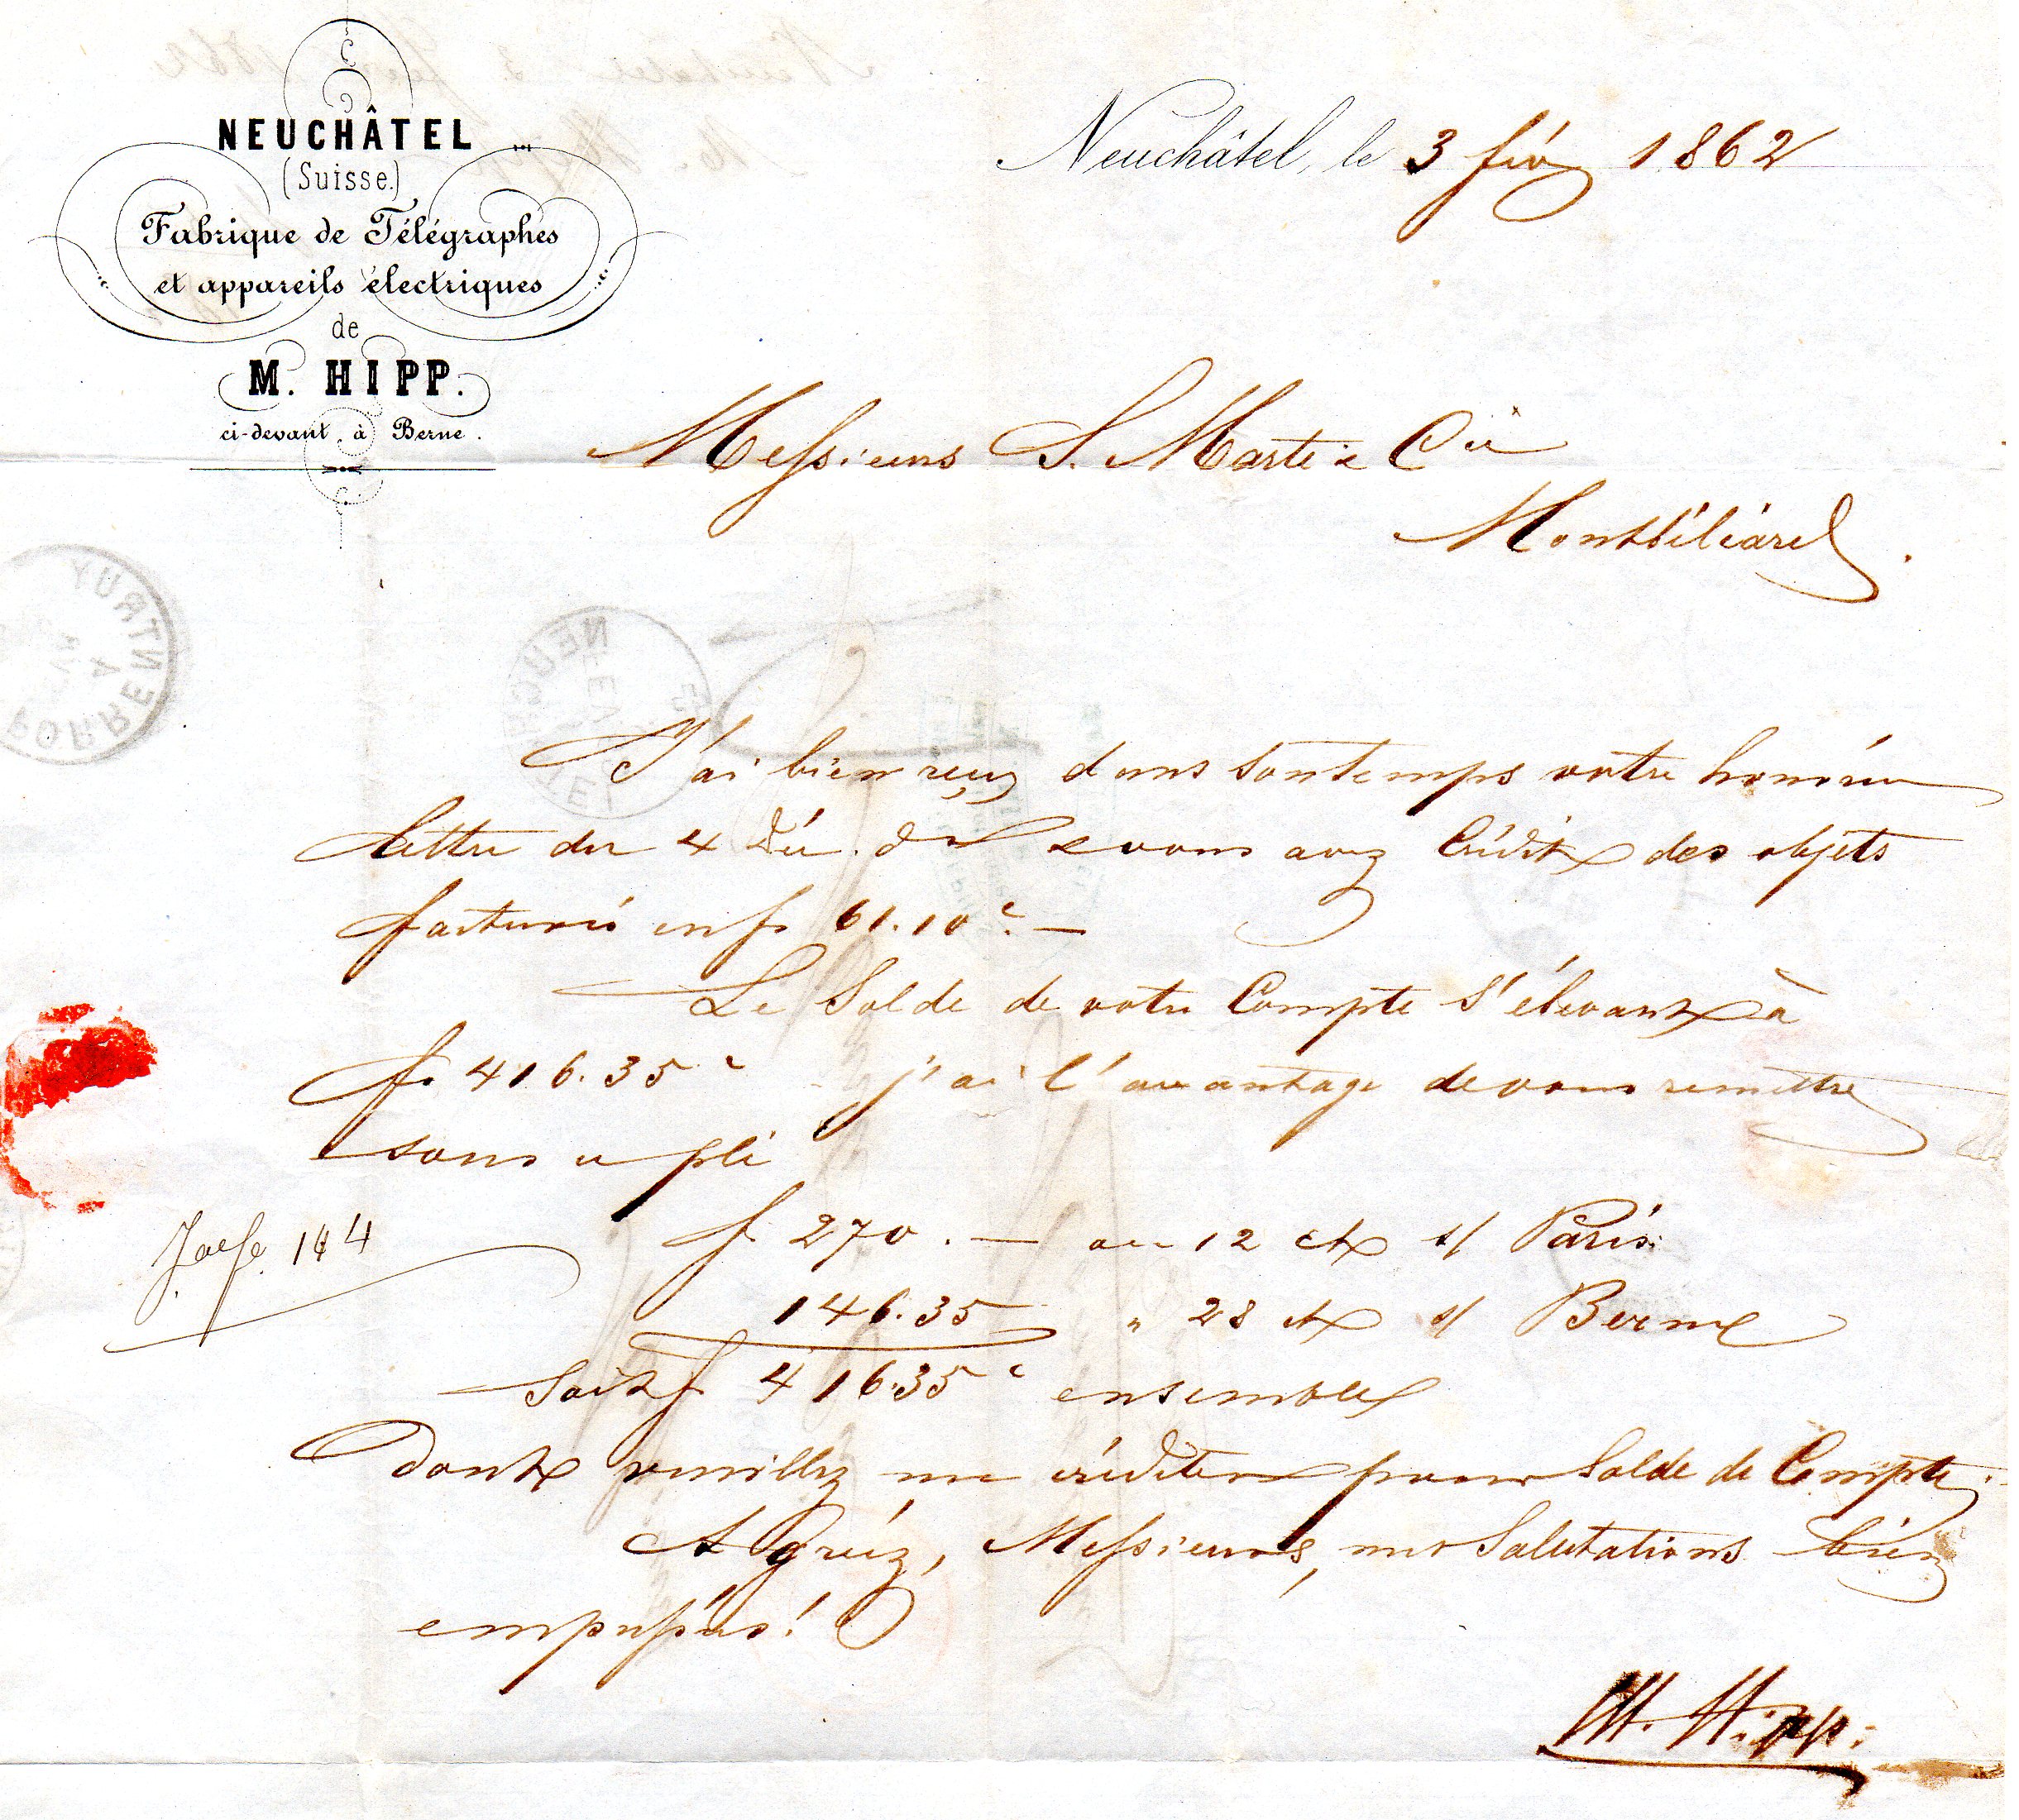 NEUCHÂTEL
(Suisse.)
Fabrique de Télégraphes
et appareils électriques
de
M. HIPP.
ci-devant à Berne.
Neuchâtel, le 3 fév 1862
Messieurs S. Marti & Cie
Montbéliard
J'ai bien reçu dans son temps votre honorée
lettre du 4 Déc. & vous avez Crédit des objets
facturés en fs 61.10c. —
Le Solde de votre Compte s'élevant à
fs 416.35c j'ai l'avantage de vous remettre
sous ce pli
f 270. — au 12 ct s/ Paris
146.35 " 28 ct s/ Berne
Soit f 416.35c ensemble
dont veuillez me créditer pour Solde de Compte.
Agréez, Messieurs, mes Salutations bien
empressées!
M. Hipp.
144
PORRENTRUY
NEUCHATEL